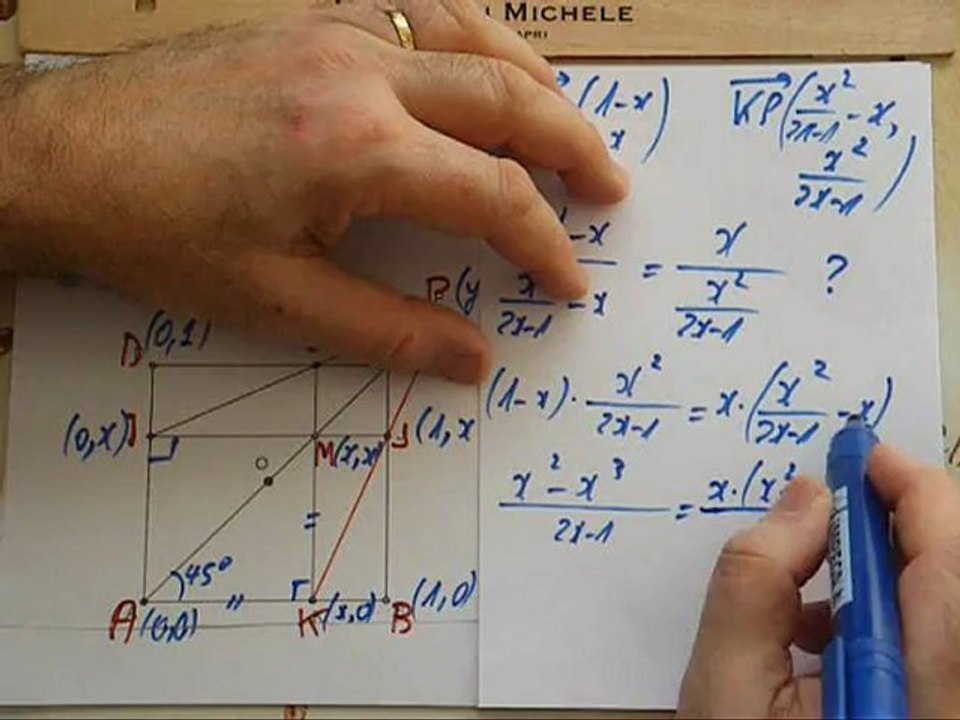 MICHELE
(1-x
x)
KP(x²/2x-1 - x,
x²/2x-1)
-x / -x = x / x²/2x-1 ?
(1-x)·x²/2x-1 = x·(x²/2x-1 - x)
x²-x³/2x-1 = x·(x²
D(0,1)
(0,x)
M(x,x)
(1,x
45°
A(0,0)
K(x,0)
B(1,0)